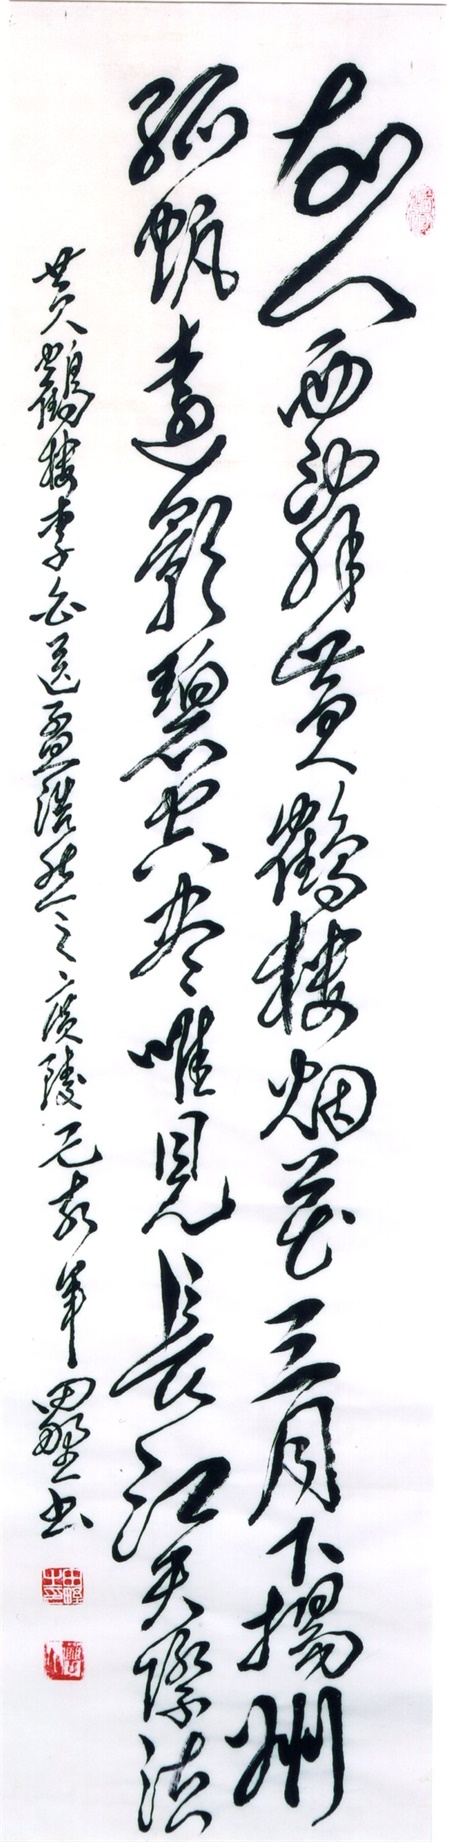 故人西辭黃鶴樓烟花三月下揚州
孤帆遠影碧空盡唯見長江天際流
黃鶴樓李白送孟浩然之廣陵己亥年田書